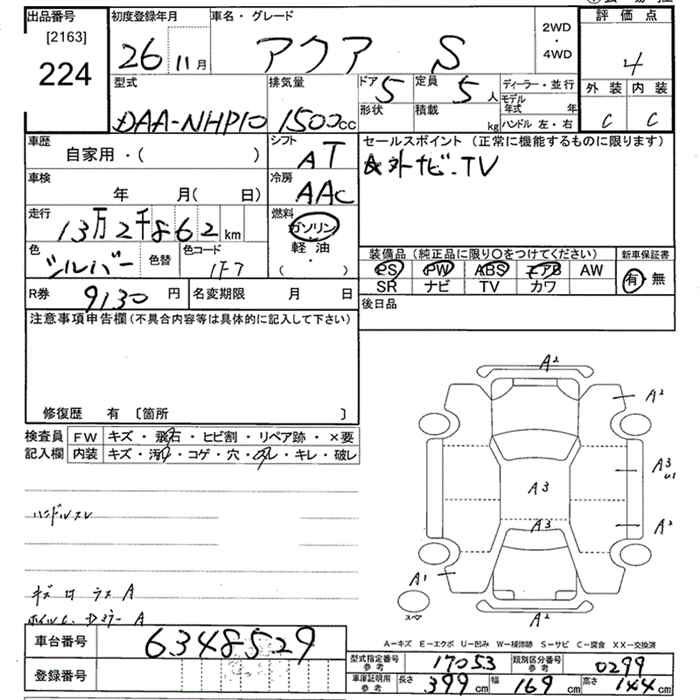 出品番号 初度登録年月 車名・グレード 評価点
[2163]
224
26 11月 アクア S 2WD・4WD 4
型式 排気量 ドア 5 定員 5人 ディーラー・並行 外装 内装
形状 積載 kg モデル年式 年
DAA-NHP10 1500cc ハンドル 左・右 C C
車歴 シフト セールスポイント(正常に機能するものに限ります)
自家用・( ) AT 外ナビ.TV
車検 冷房
年 月( 日) AAC
走行 燃料
13万2千862km ガソリン・軽油
( ・ )
装備品(純正品に限り○をつけてください) 新車保証書
色 シルバー 色替 色コード 1F7
PS PW ABS エアB AW 有・無
SR ナビ TV カワ
R券 9130円 名変期限 月 日 後日品
注意事項申告欄(不具合内容等は具体的に記入して下さい)
修復歴 有 〔箇所 〕
検査員 FW キズ・飛石・ヒビ割・リペア跡・×要
記入欄 内装 キズ・汚れ・コゲ・穴・スレ・キレ・破レ
A2
A2
A3
U1
A3
A3
A2
A1
A2
スペア
ハンドルスレ
A
A
A-キズ E-エクボ U-凹み W-補修跡 S-サビ C-腐食 XX-交換済
車台番号 6348529
登録番号
型式指定番号 参考 17053 類別区分番号 参考 0299
車庫証明用 参考 長さ 399cm 幅 169cm 高さ 144cm